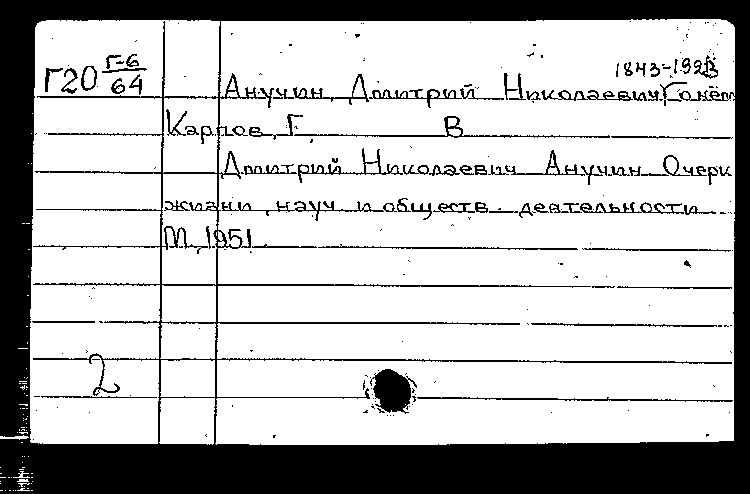 1843-1923
Г20 Г-6/64
Анучин, Дмитрий Николаевич
Карпов, Г. В
Дмитрий Николаевич Анучин Очерк
жизни, науч и обществ. деятельности
М, 1951
2